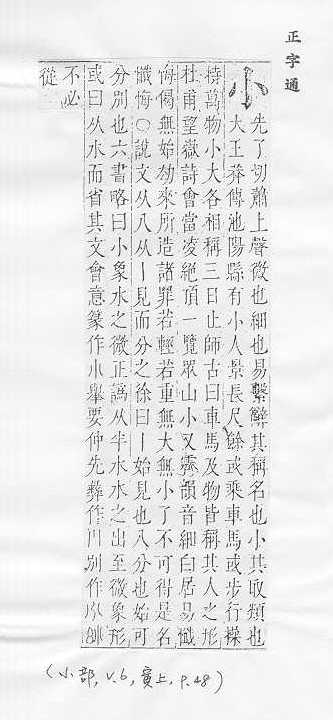 正字通
小 先了切蕭上聲微也細也易繫辭其稱名也小其取類也
大王莽傳池陽縣有小人景長尺餘或乘車馬或步行操
持萬物小大各相稱三日止師古曰車馬及物皆稱其人之形
杜甫望嶽詩會當凌絕頂一覽眾山小又霽韻音細白居易懺
悔偈無始劫來所造諸罪若輕若重無大無小了不可得是名
懺悔○說文从八从丨見而分之徐曰丨始見也八分也始可
分別也六書略曰小象水之微正譌从半水水之出至微象形
或曰从水而省其文會意篆作小舉要仲先彝作 別作
不必
從
(小部, v.6, 寅上, p.48)